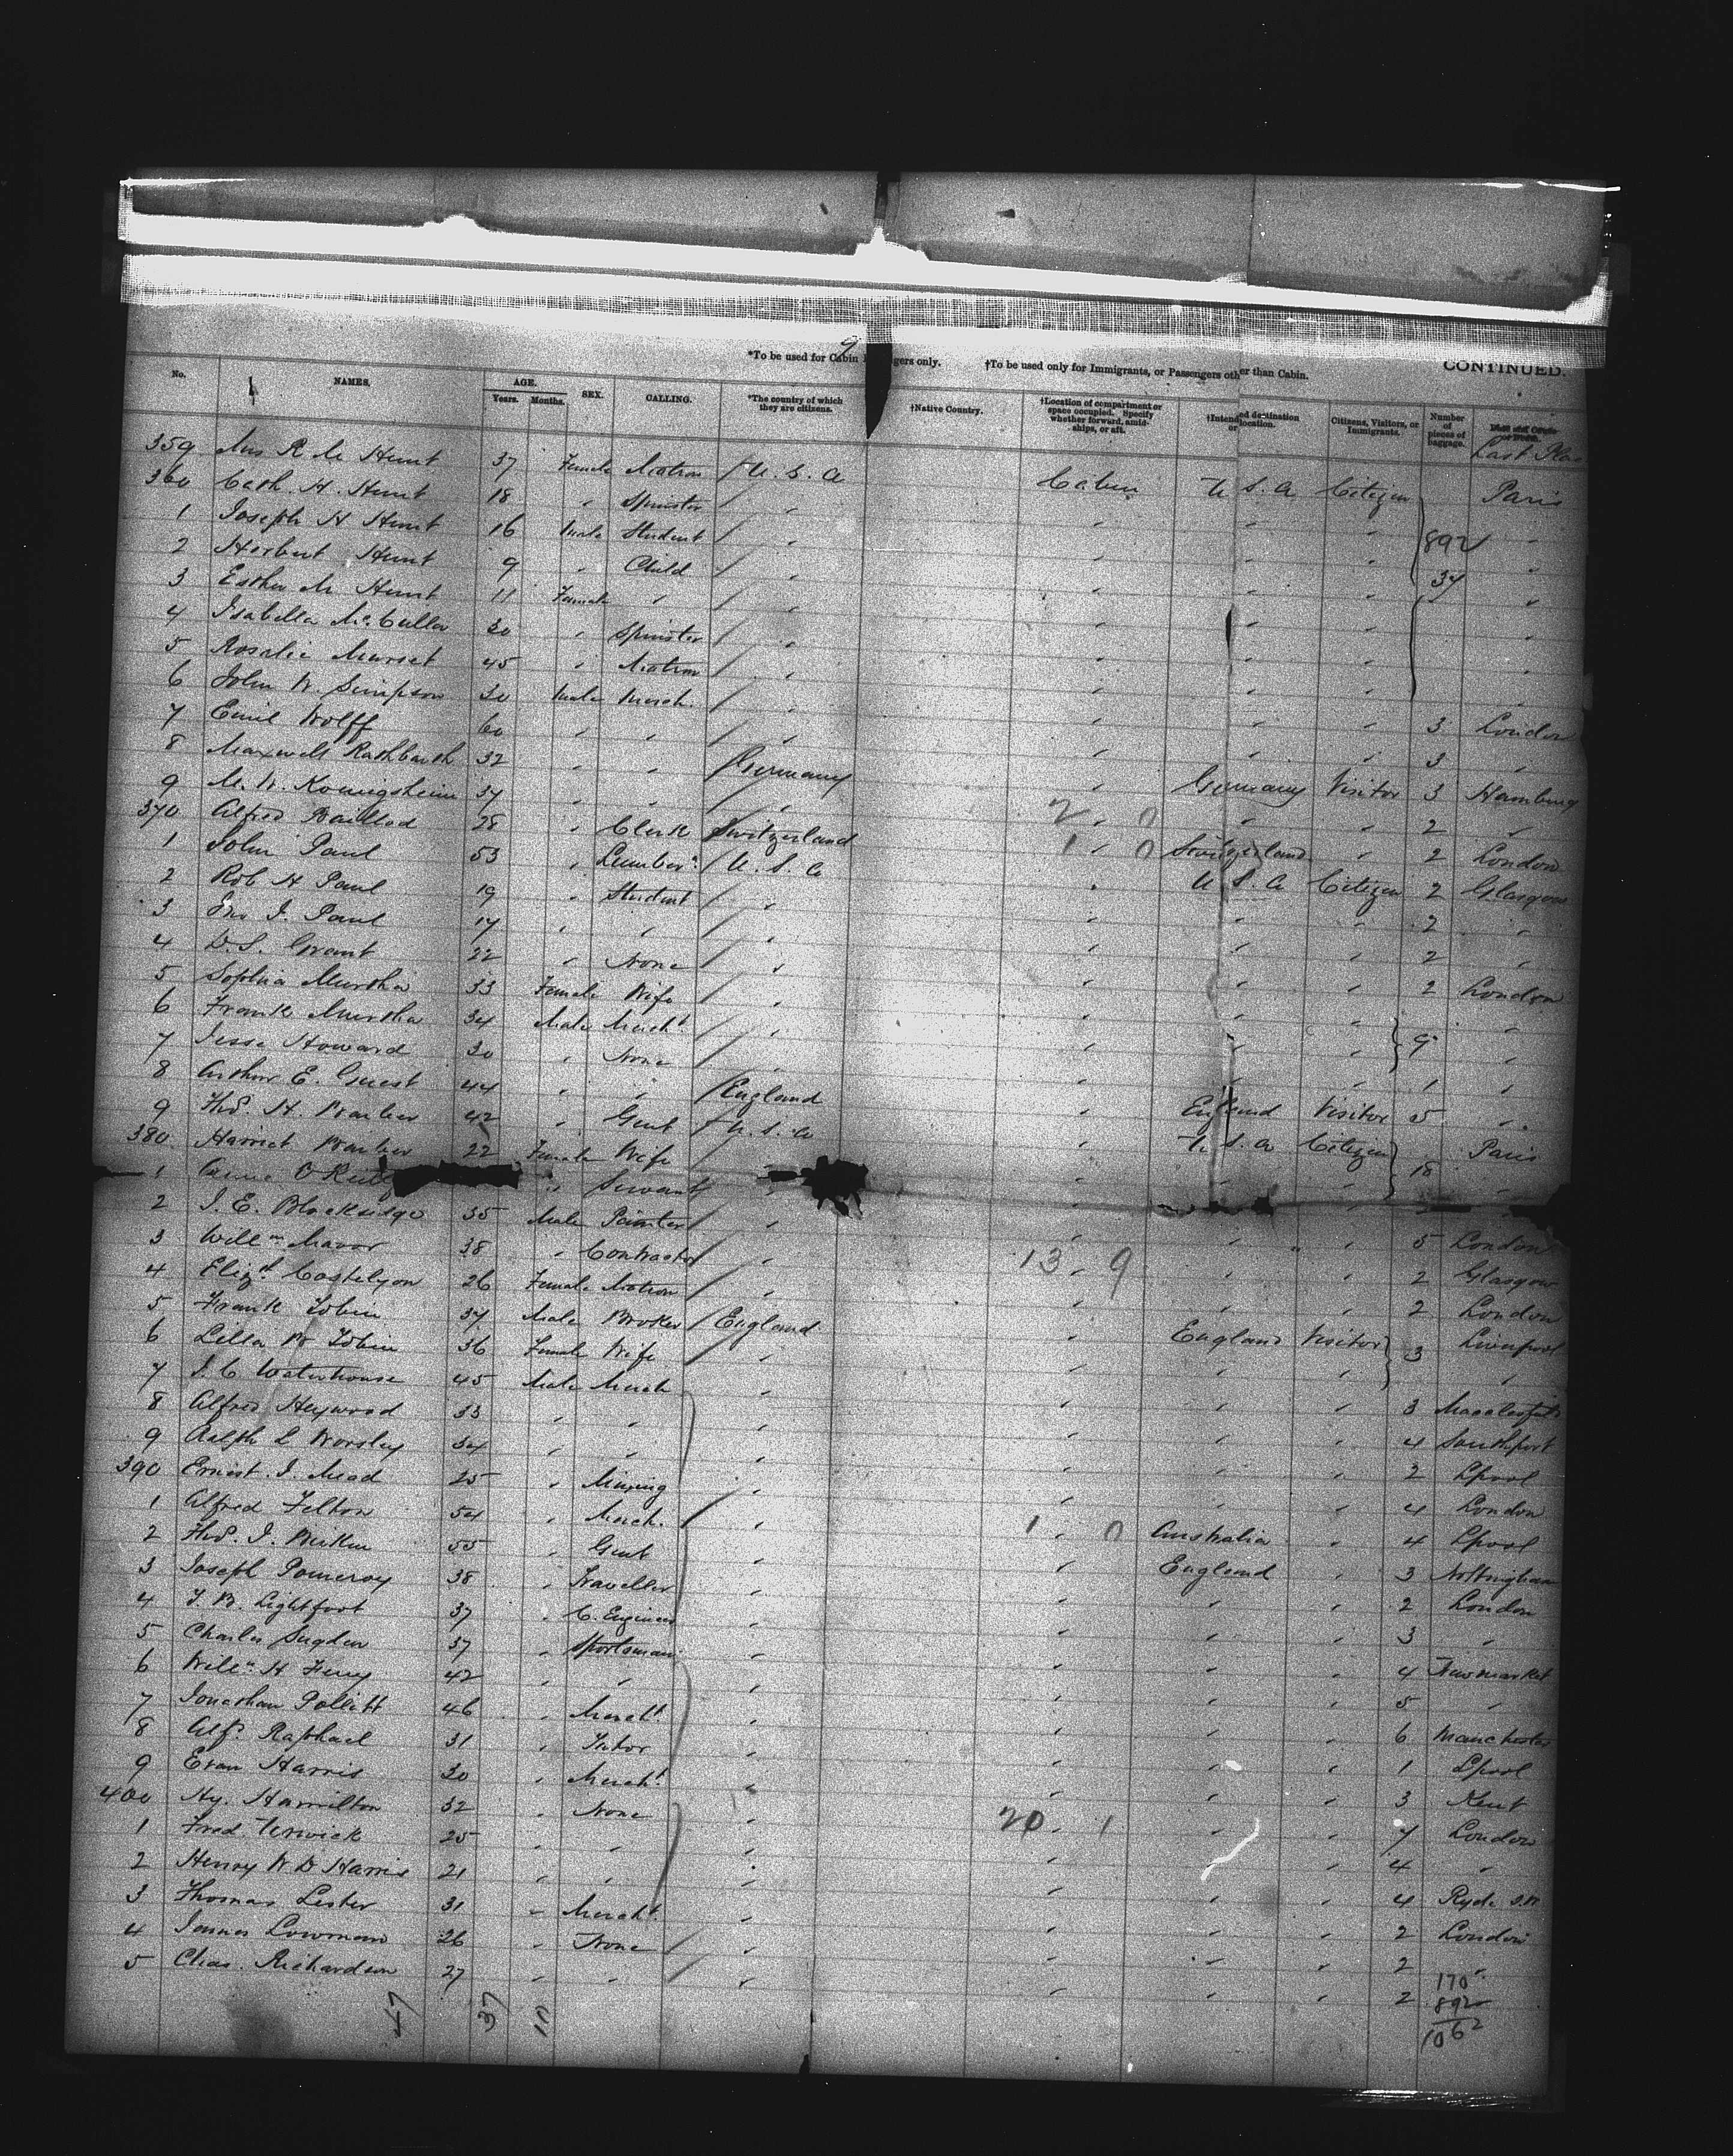 9
*To be used for Cabin gers only. †To be used only for Immigrants, or Passengers other than Cabin. CONTINUED.
No. NAMES. AGE. Years. Months. SEX. CALLING. *The country of which they are citizens. †Native Country. †Location of compartment or space occupied. Specify whether forward, amidships, or aft. †Intended destination or location. Citizens, Visitors, or Immigrants. Number of pieces of baggage. Last
359 Mrs R M Hunt 37 Female Matron / U. S. A Cabin U S. A Citizen Paris
360 Cath. H. Hunt 18 " Spinster / " " " " "
1 Joseph H Hunt 16 Male Student / " " " " 892 "
2 Herbert Hunt 9 " Child / " " " " 34 "
3 Esther M Hunt 11 Female " / " " " " "
4 Isabella Mc 30 " Spinster / " " " " "
5 Rosalie 45 " Matron / " " " " "
6 John W. Simpson 30 Male Merch. / " " " " 3 London
7 Emil Wolff 60 " " / " " " " 3 "
8 Maxwell 32 " " / Germany " Germany Visitor 3 Hamburg
9 M. W. Konigsheim 37 " " / " 2 " 0 " " 2 "
370 Alfred Baillod 28 " Clerk Switzerland 1 " 0 Switzerland " 2 London
1 John Paul 53 " Lumber / U. S. A " U S. A Citizen 2 Glasgow
2 Rob H Paul 19 " Student / " " " " 2 "
3 Jno J. Paul 17 " " / " " " " 2 "
4 D. S. Grant 22 " None / " " " " 2 London
5 Sophia Murtha 33 Female Wife / " " " " "
6 Frank Murtha 34 Male Mercht / " " " " 9 "
7 Jesse Howard 30 " None / " " " " 1 "
8 Arthur E. Guest 44 " " / England " England Visitor 5 "
9 Thos. H. Barber 42 " Gent / U. S. A " U. S. A Citizen Paris
380 Harriet Barber 22 Female Wife / " " " 18 "
1 O'Reilly " Servant / " " "
2 J. E. 35 Male Painter / " " " " 5 London
3 Willm Mavor 38 " Contractor / " 13 " 9 " " 2 Glasgow
4 Elizth Costelyon 26 Female Matron / " " " " 2 London
5 Frank Tobin 37 Male Broker / England " England Visitor Liverpool
6 Lilla B Tobin 36 Female Wife / " " " " 3 "
7 J. C Waterhouse 45 Male Merch " " " " 3 Macclesfield
8 Alfred Heywood 33 " " " " " " 4 Southport
9 Ralph L Worsley 34 " " " " " " 2 Lpool
390 Ernest. J. Mead 25 " Mining " " " " 4 London
1 Alfred Felton 54 " Merch. " 1 " 0 Australia " 4 Lpool
2 Thos. J. Birkin 55 " Gent " " England " 3 Nottingham
3 Joseph Pomeroy 38 " Traveller " " " " 2 London
4 T. B. Lightfoot 37 " C. Engineer " " " " 3 "
5 Charles Sugden 37 " Sportsman " " " " 4 Newmarket
6 Willm H 42 " " " " " " 5 "
7 Jonathan Pollitt 46 " Mercht " " " " 6 Manchester
8 Alfd. Raphael 31 " Tutor " " " " 1 Lpool
9 Evan Harris 30 " Mercht " " " " 3 Kent
400 Hy. Hamilton 32 " None " 20 " 1 " " 7 London
1 Fred. Urwick 25 " " " " " 4 "
2 Henry W D Harris 21 " " " " " " 4 Ryde
3 Thomas Lester 31 " Mercht. " " " " 2 London
4 James Lowman 26 " None / " " " " 2 "
5 Chas. Richardson 27 " " / " " " " 2
170
892
1062
47 37 10